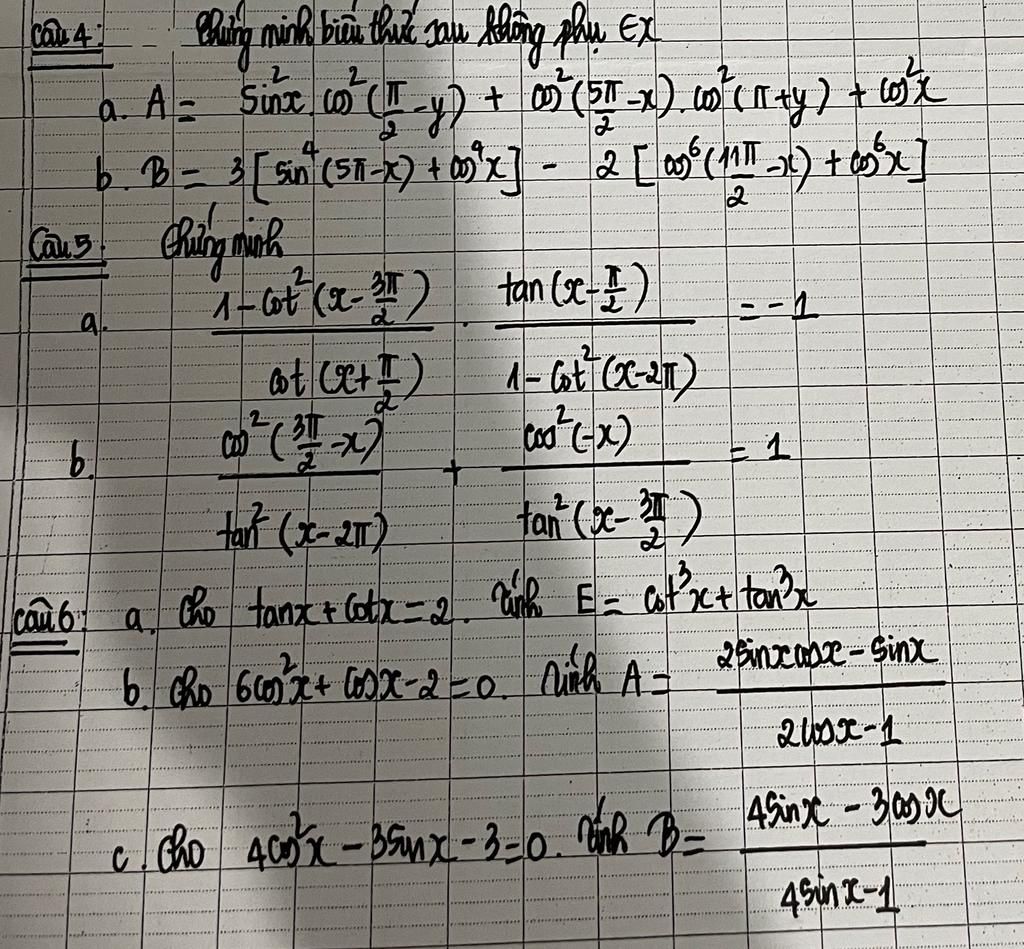 Câu 4: Chứng minh biểu thức sau không phụ ∈ x
a. A = sin²x.cos²(π/2 - y) + cos²(5π/2 - x).cos²(π + y) + cos²x
b. B = 3[sin⁴(5π - x) + cos⁴x] - 2[cos⁶(11π/2 - x) + cos⁶x]
Câu 5: Chứng minh
a. (1 - cot²(x - 3π/2))/(cot(x + π/2)) . (tan(x - π/2))/(1 - cot²(x - 2π)) = -1
b. (cos²(3π/2 - x))/(tan²(x - 2π)) + (cos²(-x))/(tan²(x - 3π/2)) = 1
Câu 6: a. Cho tanx + cotx = 2. Tính E = cot³x + tan³x
b. Cho 6cos²x + cosx - 2 = 0. Tính A = (2sinxcosx - sinx)/(2cosx - 1)
c. Cho 4cos²x - 3sinx - 3 = 0. Tính B = (4sinx - 3cosx)/(4sinx - 1)